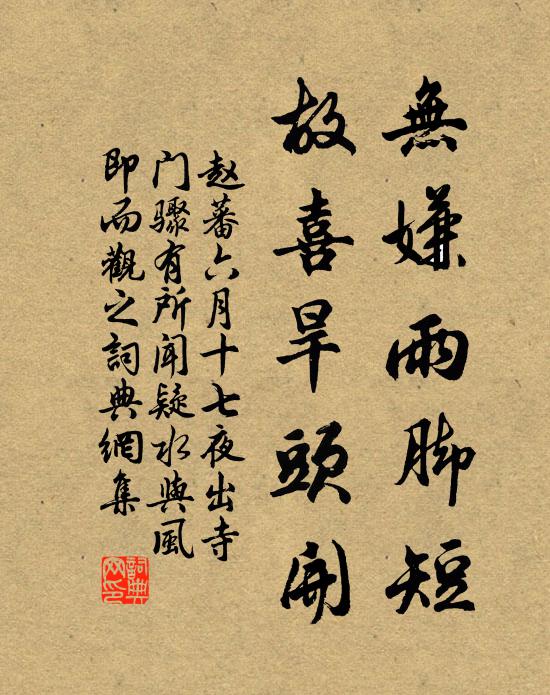 無嫌雨脚短
故喜旱頭開
赵蕃六月十七夜出寺
门骤有所闻疑水與風
即而觀之詞典網集
詞典
网印